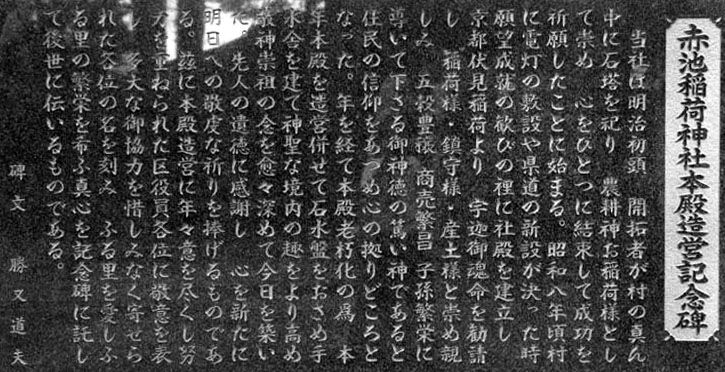 赤池稲荷神社本殿造営記念碑
当社は明治初頭 開拓者が村の真ん
中に石塔を祀り 農耕神お稲荷様とし
て崇め 心をひとつに結束して成功を
祈願したことに始まる。昭和八年頃村
に電灯の敷設や県道の新設が決った時
願望成就の歓びの裡に社殿を建立し
京都伏見稲荷より 宇迦御魂命を勧請
し 稲荷様・鎮守様・産土様と崇め親
しみ 五穀豊穣 商売繁昌 子孫繁栄に
導いて下さる御神徳の篤い神であると
住民の信仰をあつめ心の拠りどころと
なった。年を経て本殿老朽化の為 本
年本殿を造営併せて石水盤をおさめ手
水舎を建て神聖な境内の趣をより高め
敬神崇祖の念を愈々深めて今日を築い
た。先人の遺徳に感謝し 心を新たに
明日への敬虔な祈りを捧げるものであ
る。茲に本殿造営に年々意を尽くし努
力を重ねられた区役員各位に敬意を表
し 多大な御協力を惜しみなく寄せら
れた各位の名を刻み ふる里を愛しふ
る里の繁栄を希ふ真心を記念碑に託し
て後世に伝いるものである。
碑文 勝又道夫